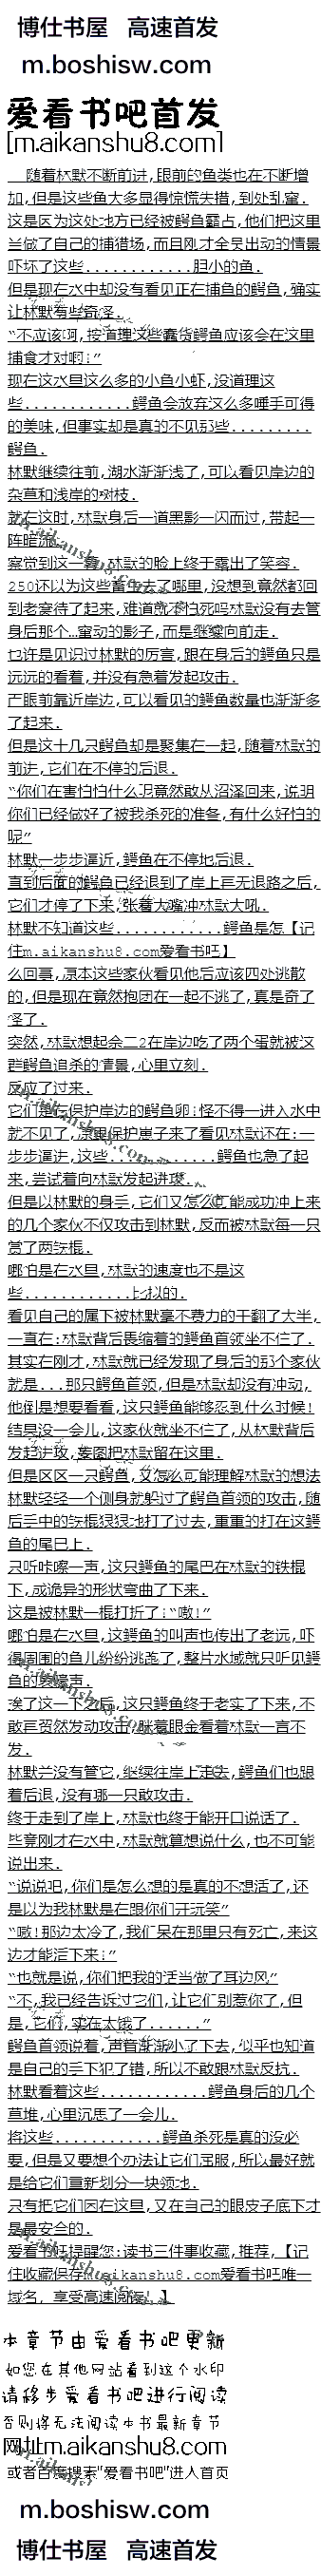 博仕书屋 高速首发
m.boshisw.com
爱看书吧首发
[m.aikanshu8.com]
随着林默不断前进,眼前的鱼类也在不断增
加,但是这些鱼大多显得惊慌失措,到处乱窜.
这是因为这处地方已经被鳄鱼霸占,他们把这里
当做了自己的捕猎场,而且刚才全员出动的情景
吓坏了这些............胆小的鱼.
但是现在水中却没有看见正在捕鱼的鳄鱼,确实
让林默有些奇怪.
“不应该啊,按道理这些蠢货鳄鱼应该会在这里
捕食才对啊!”
现在这水里这么多的小鱼小虾,没道理这
些............鳄鱼会放弃这么多唾手可得
的美味,但事实却是真的不见那些.........
鳄鱼.
林默继续往前,湖水渐渐浅了,可以看见岸边的
杂草和浅岸的树枝.
就在这时,林默身后一道黑影一闪而过,带起一
阵暗流.
察觉到这一幕,林默的脸上终于露出了笑容.
250还以为这些畜生去了哪里,没想到竟然都回
到老窝待了起来,难道就不怕死吗林默没有去管
身后那个…窜动的影子,而是继续向前走.
也许是见识过林默的厉害,跟在身后的鳄鱼只是
远远的看着,并没有急着发起攻击.
而眼前靠近岸边,可以看见的鳄鱼数量也渐渐多
了起来.
但是这十几只鳄鱼却是聚集在一起,随着林默的
前进,它们在不停的后退.
“你们在害怕什么呢竟然敢从沼泽回来,说明
你们已经做好了被我杀死的准备,有什么好怕的
呢”
林默一步步逼近,鳄鱼在不停地后退.
直到后面的鳄鱼已经退到了岸上再无退路之后,
它们才停了下来,张着大嘴冲林默大吼.
林默不知道这些............鳄鱼是怎【记
住m.aikanshu8.com爱看书吧】
么回事,原本这些家伙看见他后应该四处逃散
的,但是现在竟然抱团在一起不逃了,真是奇了
怪了.
突然,林默想起余二2在岸边吃了两个蛋就被这
群鳄鱼追杀的情景,心里立刻.
反应了过来.
它们是在保护岸边的鳄鱼卵!怪不得一进入水中
就不见了,原来保护崽子来了看见林默还在:一
步步逼进,这些............鳄鱼也急了起
来,尝试着向林默发起进攻.
但是以林默的身手,它们又怎么可能成功冲上来
的几个家伙不仅攻击到林默,反而被林默每一只
赏了两铁棍.
哪怕是在水里,林默的速度也不是这
些............比拟的.
看见自己的属下被林默毫不费力的干翻了大半,
一直在:林默背后畏缩着的鳄鱼首领坐不住了.
其实在刚才,林默就已经发现了身后的那个家伙
就是...那只鳄鱼首领,但是林默却没有冲动,
他倒是想要看看,这只鳄鱼能够忍到什么时候!
结果没一会儿,这家伙就坐不住了,从林默背后
发起进攻,妄图把林默留在这里.
但是区区一只鳄鱼,又怎么可能理解林默的想法
林默轻轻一个侧身就躲过了鳄鱼首领的攻击,随
后手中的铁棍狠狠地打了过去,重重的打在这鳄
鱼的尾巴上.
只听咔嚓一声,这只鳄鱼的尾巴在林默的铁棍
下,成诡异的形状弯曲了下来.
这是被林默一棍打折了!“嗷!”
哪怕是在水里,这鳄鱼的叫声也传出了老远,吓
得周围的鱼儿纷纷逃窜了,整片水域就只听见鳄
鱼的哀嚎声.
挨了这一下之后,这只鳄鱼终于老实了下来,不
敢再贸然发动攻击,眯着眼金看着林默一言不
发.
林默并没有管它,继续往岸上走去,鳄鱼们也跟
着后退,没有哪一只敢攻击.
终于走到了岸上,林默也终于能开口说话了.
毕竟刚才在水中,林默就算想说什么,也不可能
说出来.
“说说吧,你们是怎么想的是真的不想活了,还
是以为我林默是在跟你们开玩笑”
“嗷!那边太冷了,我们呆在那里只有死亡,来这
边才能活下来!”
“也就是说,你们把我的话当做了耳边风”
“不,我已经告诉过它们,让它们别惹你了,但
是,它们,实在太饿了......”
鳄鱼首领说着,声音渐渐小了下去,似乎也知道
是自己的手下犯了错,所以不敢跟林默反抗.
林默看着这些............鳄鱼身后的几个
草堆,心里沉思了一会儿.
将这些............鳄鱼杀死是真的没必
要,但是又要想个办法让它们屈服,所以最好就
是给它们重新划分一块领地.
只有把它们困在这里,又在自己的眼皮子底下才
是最安全的.
爱看书吧提醒您:读书三件事收藏,推荐,【记
住收藏保存m.aikanshu8.com爱看书吧唯一
域名,享受高速阅读!】
本章节由爱看书吧更新
如您在其他网站看到这个水印
请移步爱看书吧进行阅读
否则将无法阅读本书最新章节
网址m.aikanshu8.com
或者百度搜索"爱看书吧"进入首页
m.boshisw.com
博仕书屋 高速首发